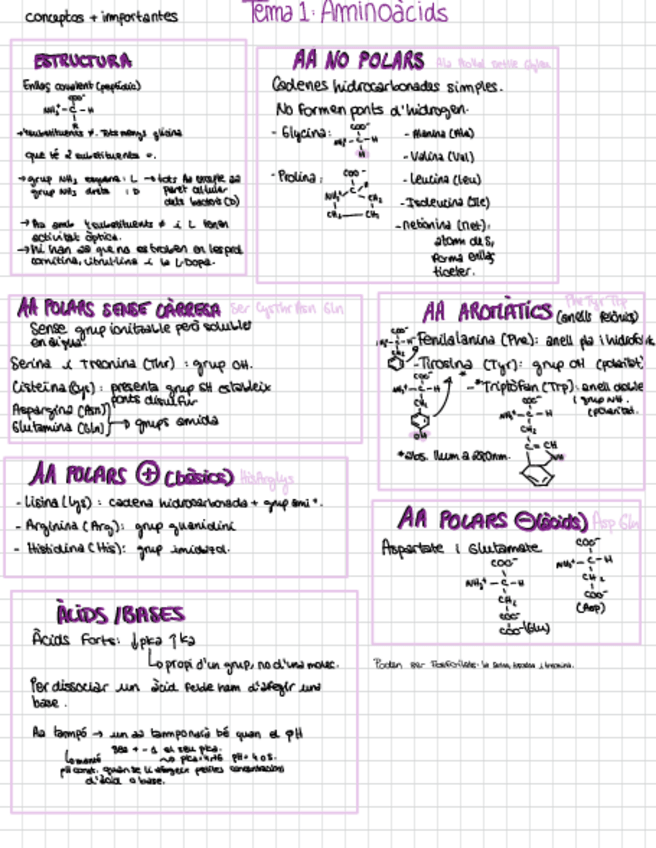 conceptos + importantes
Tema 1: Aminoàcids
ESTRUCTURA
Enllaç covalent (peptídic)
COO⁻
NH₃⁺-C-H
R
què té 2 substituents =.
→ grup NH₃ esquerra: L → tots
grup NH₃ dreta : D paret cel·lular
dels bacteris (D)
→ Aa amb 4 substituents ≠ i L tenen
activitat òptica.
→ Hi han aa que no es troben en
i la L-Dopa.
AA NO POLARS
Cadenes hidrocarbonades simples.
No formen ponts d'hidrogen.
- Glycina:
COO⁻
NH₃⁺-C-H
H
- Prolina:
COO⁻
- Alanina (Ala)
- Valina (Val)
- Leucina (Leu)
- Isoleucina (Ile)
- Metionina (Met):
àtom de S,
forma enllaç
tioeter.
AA POLARS SENSE CÀRREGA Ser Cys Thr Asn Gln
Sense grup ionitzable però soluble
en aigua
Serina i Treonina (Thr) : grup OH.
Cisteïna (Cys): presenta grup SH estableix
ponts disulfur
Aspargina (Asn)
Glutamina (Gln) → grups amida
AA AROMÀTICS (anells fenòlics)
Phe Tyr Trp
- Fenilalanina (Phe): anell pla i hidrofob
- Tirosina (Tyr): grup OH (polaritat)
- *Triptòfan (Trp): anell doble
i grup NH.
(polaritat.
COO⁻
NH₃⁺-C-H
CH₂
OH
COO⁻
NH₃⁺-C-H
CH₂
C = CH
*abs. llum a 280nm.
AA POLARS ⊕ (bàsics) His Arg Lys
- Lisina (Lys) : cadena hidrocarbonada + grup ami⁺.
- Arginina (Arg): grup guanidini
- Histidina (His): grup imidazol.
AA POLARS ⊖ (àcids) Asp Glu
Aspartate i Glutamate
COO⁻
NH₃⁺-C-H
CH₂
COO⁻
(Asp)
COO⁻
NH₃⁺-C-H
CH₂
COO⁻ (Glu)
Poden ser fosforilats: la serina, tirosina i treonina.
ÀCIDS / BASES
Àcids forts: ↓pka ↑ka
↳ propi d'un grup, no d'una molec.
Per dissociar un àcid feble hem d'afegir una
base.
Aa tampó → un aa tamponarà bé quan el pH
sea + - 1 el seu pka.
pH const. quan se li afegeix petites concentracions
d'àcid o base.